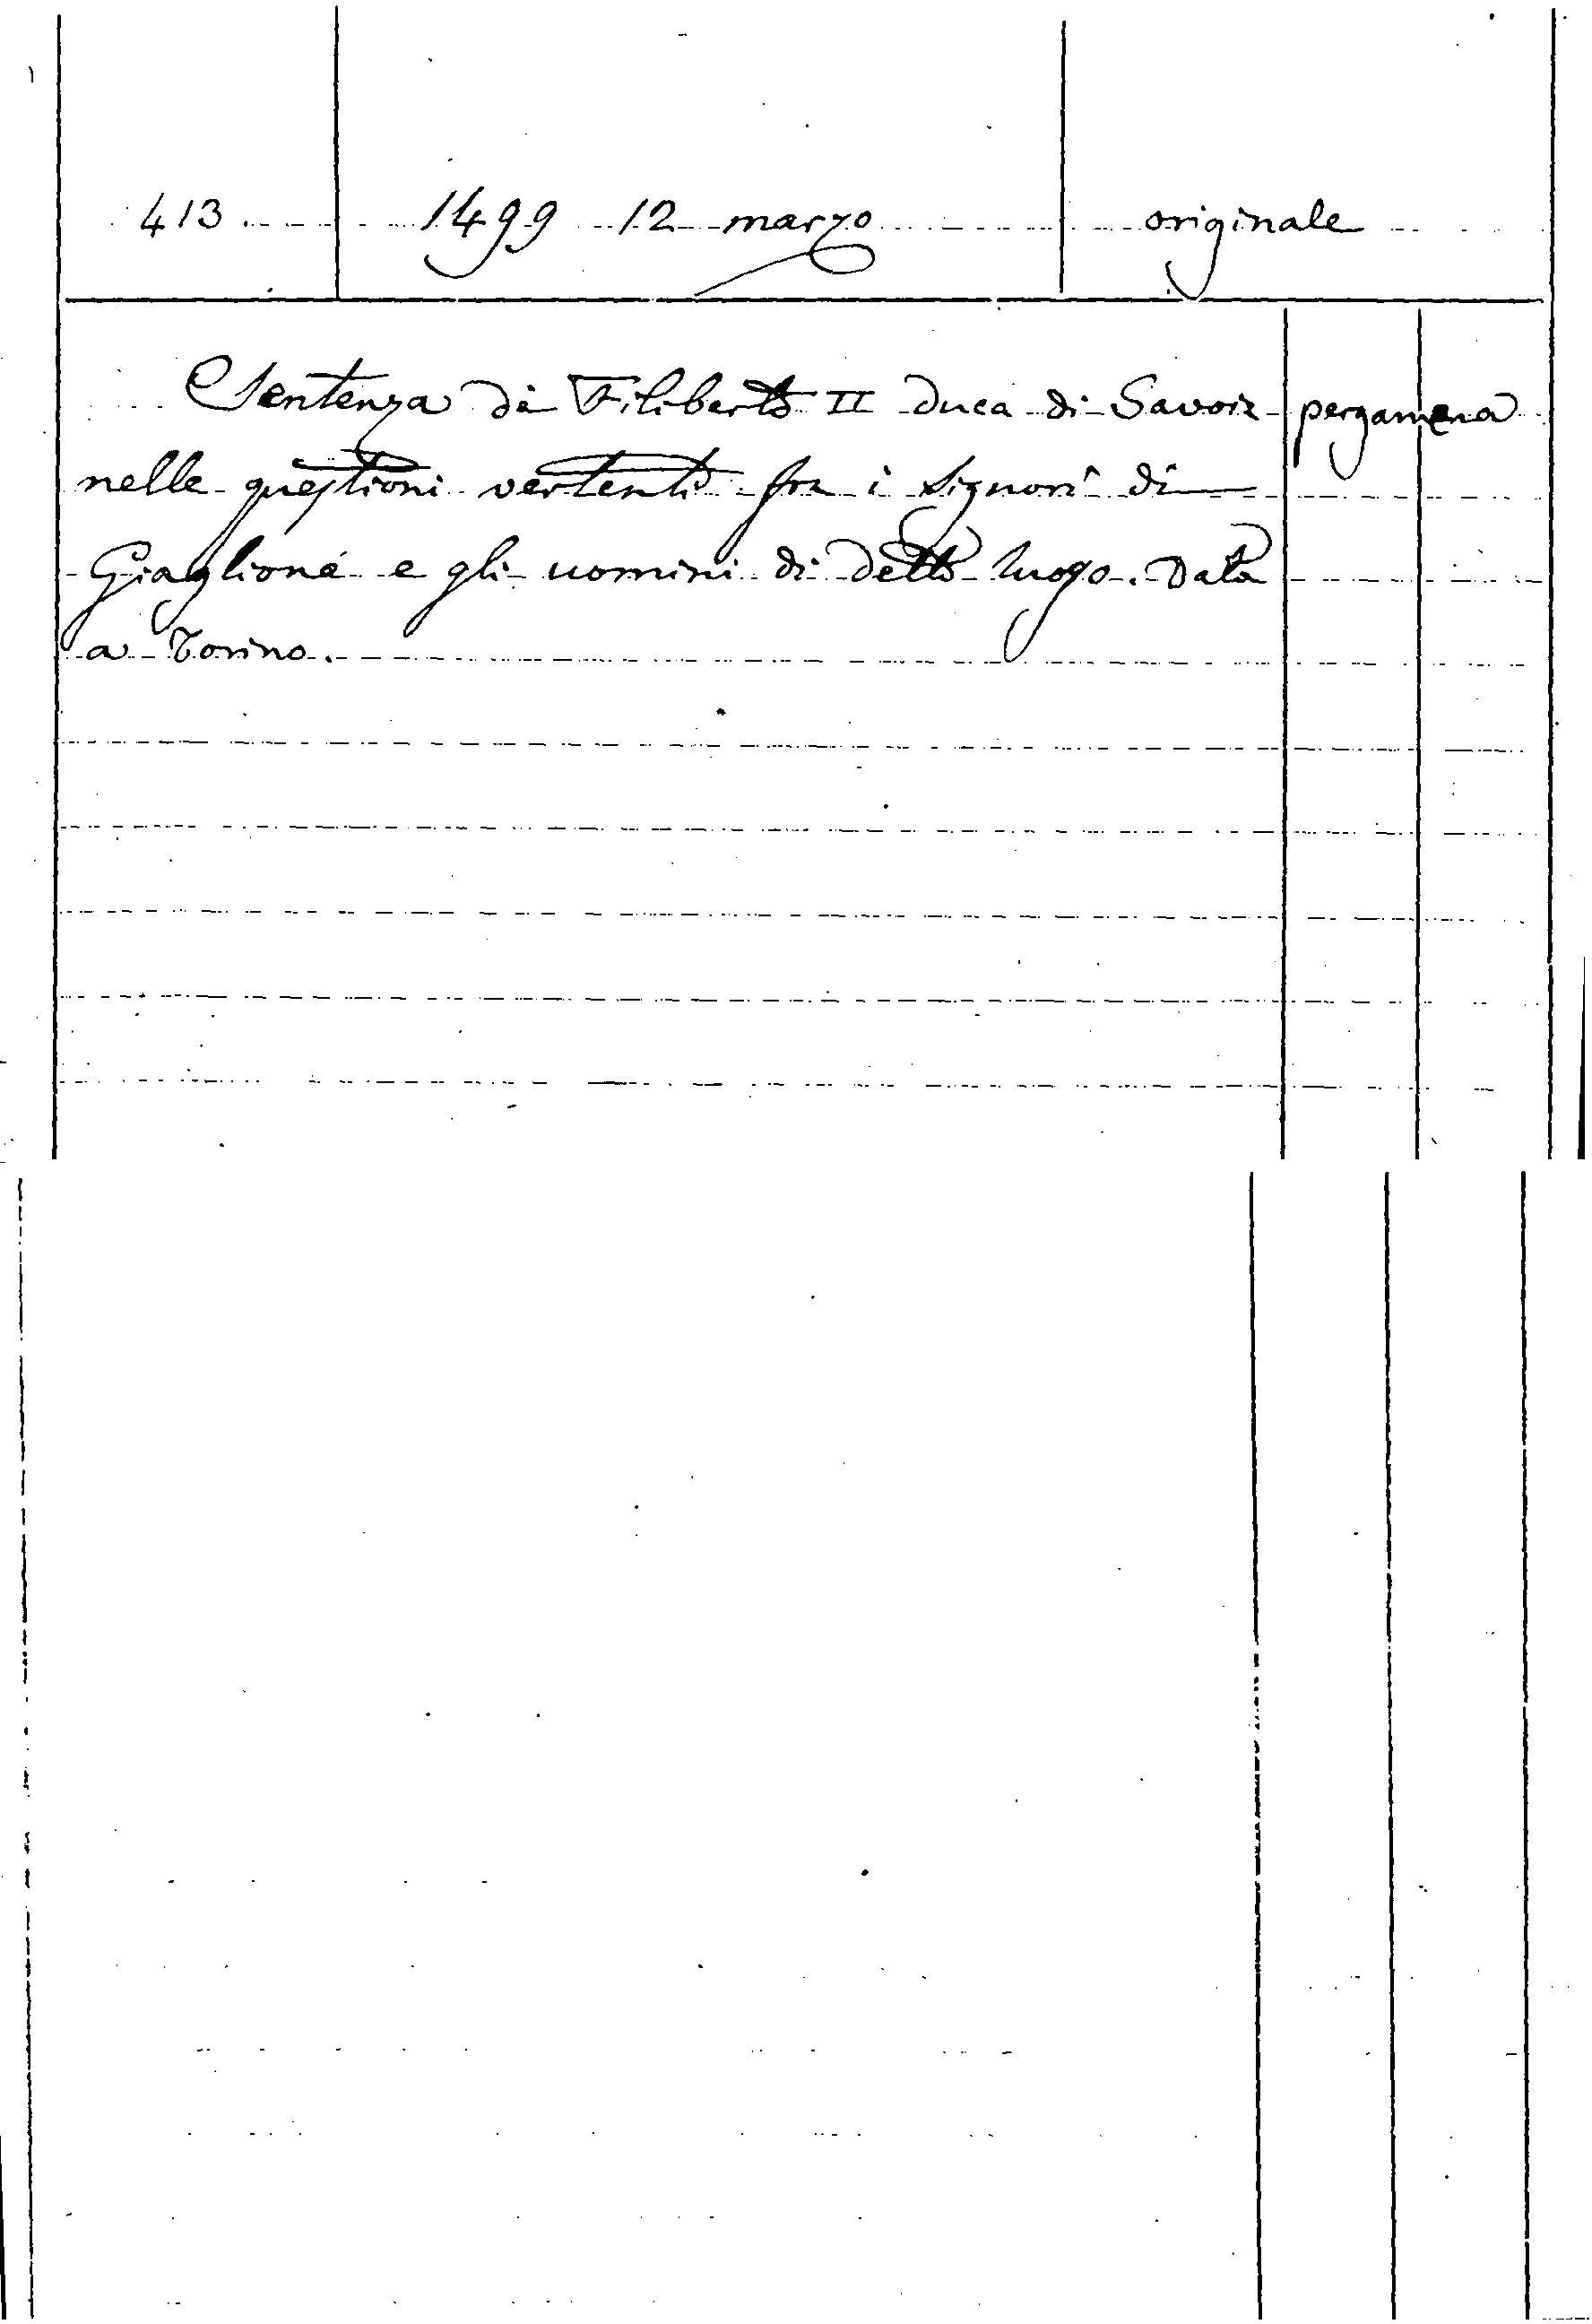 413. 1499 12 marzo originale
Sentenza di Filiberto II duca di Savoia pergamena
nelle questioni vertenti fra i signori di
Giaglione e gli uomini di detto luogo. Data
a Torino.